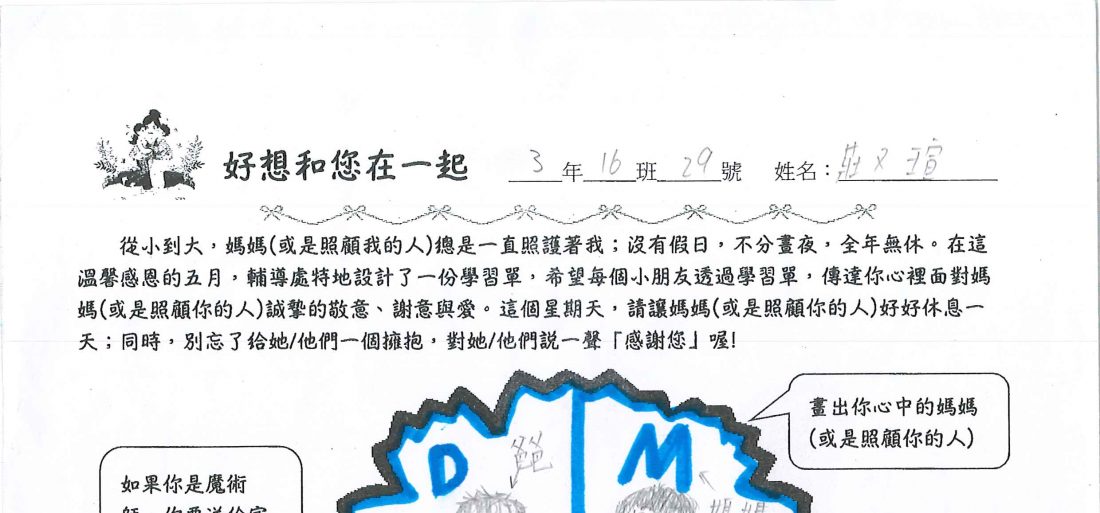 好想和您在一起 3年16班29號 姓名：莊又瑄
從小到大，媽媽(或是照顧我的人)總是一直照護著我；沒有假日，不分晝夜，全年無休。在這
溫馨感恩的五月，輔導處特地設計了一份學習單，希望每個小朋友透過學習單，傳達你心裡面對媽
媽(或是照顧你的人)誠摯的敬意、謝意與愛。這個星期天，請讓媽媽(或是照顧你的人)好好休息一
天；同時，別忘了給她/他們一個擁抱，對她/他們說一聲「感謝您」喔!
畫出你心中的媽媽
(或是照顧你的人)
D 爸爸 M
媽媽
如果你是魔術
師，你要送給家